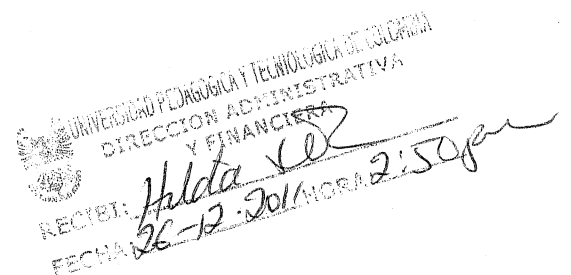 UNIVERSIDAD PEDAGOGICA Y TECNOLOGICA DE COLOMBIA
DIRECCION ADMINISTRATIVA
Y FINANCIERA
RECIBI: Hilda
FECHA: 26-12-2011 HORA: 2:50pm